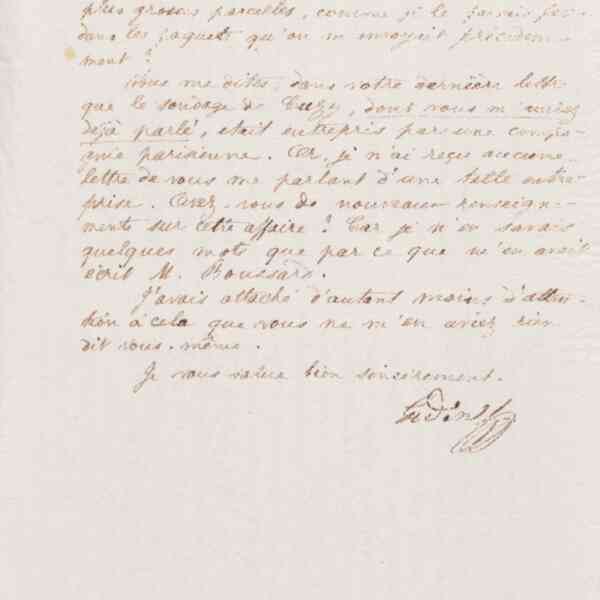 plus grosses parcelles, comme je le faisais
dans les paquets qu'on m'envoyait précédem-
ment ?
Vous me dites, dans votre dernière lettre
que le sondage de Cuzy, dont vous m'aviez
déjà parlé, était entrepris par une compa-
gnie parisienne. Or, je n'ai reçu aucune
lettre de vous me parlant d'une telle entre-
prise. Avez-vous de nouveaux renseigne-
ments sur cette affaire ? Car je n'en savais
quelques mots que par ce que m'en avait
écrit M. Roussard.
J'avais attaché d'autant moins d'atten-
tion à cela que vous ne m'en aviez rien
dit vous-même.
Je vous salue bien sincèrement.